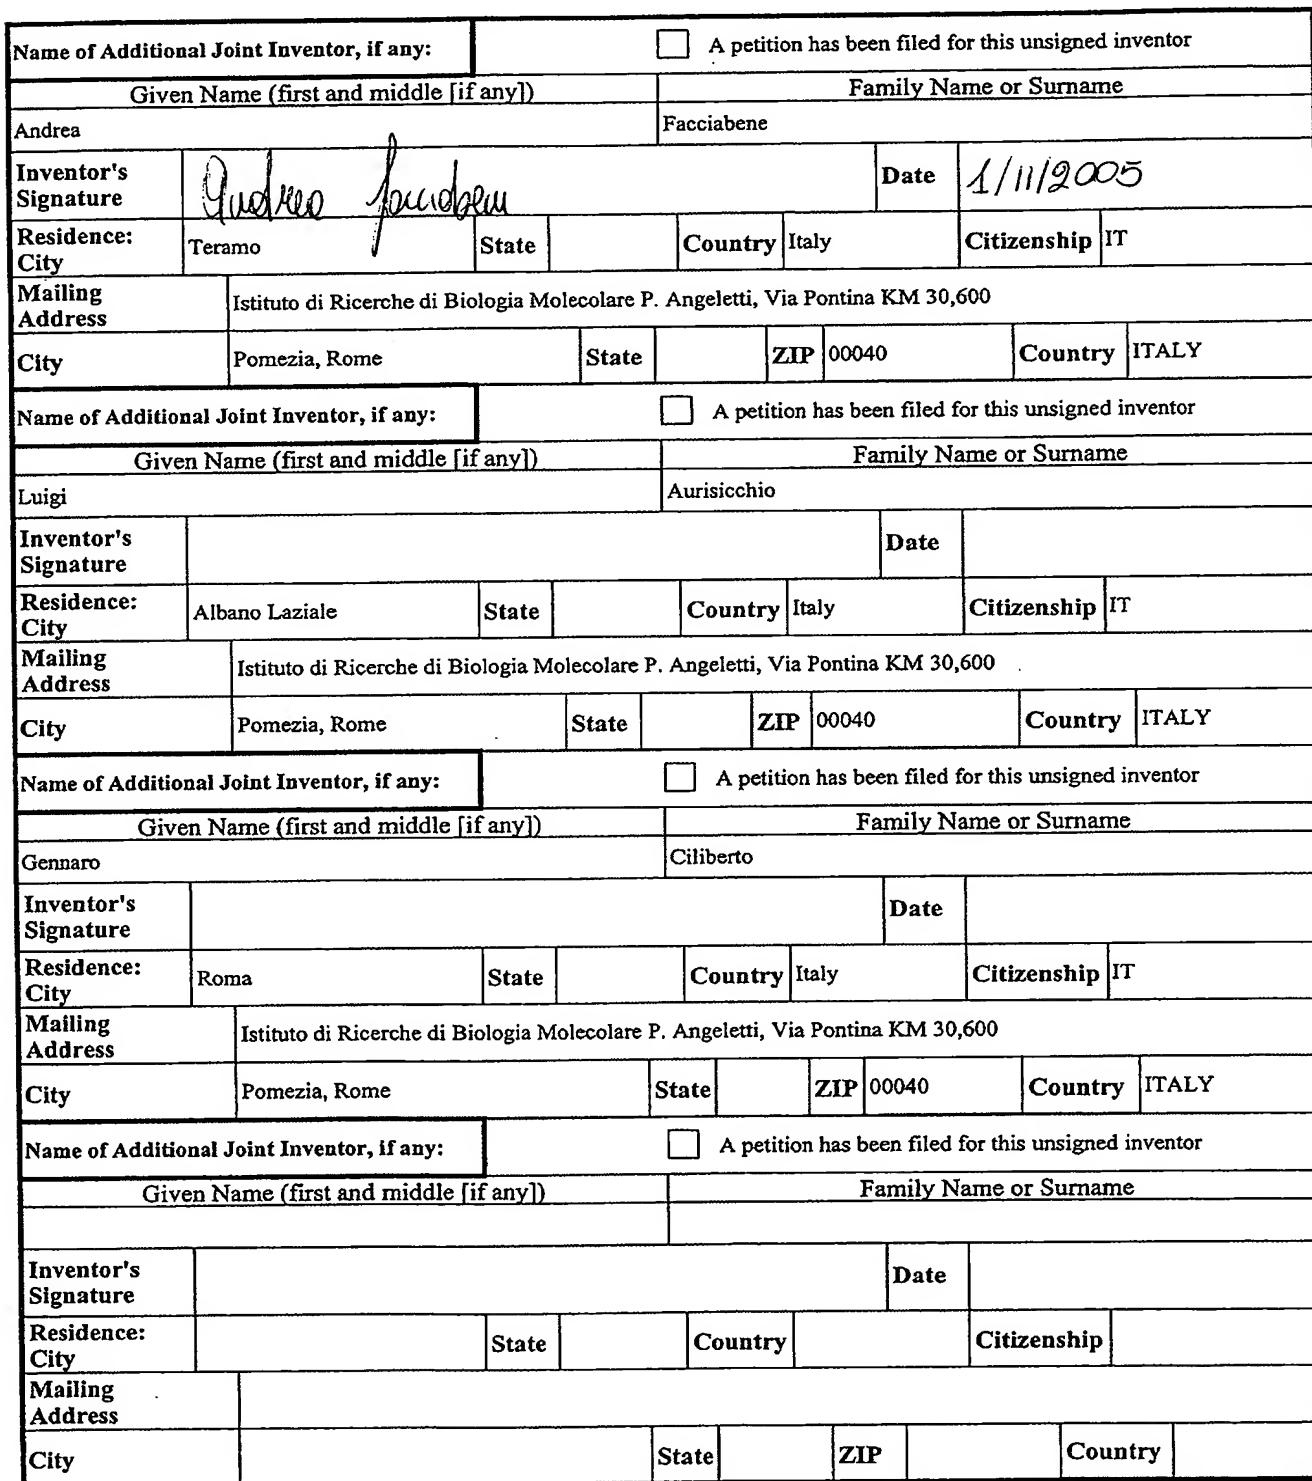 Name of Additional Joint Inventor, if any: A petition has been filed for this unsigned inventor
Given Name (first and middle [if any]) Family Name or Surname
Andrea Facciabene
Inventor's Signature Andrea Facciabene Date 1/11/2005
Residence: City Teramo State Country Italy Citizenship IT
Mailing Address Istituto di Ricerche di Biologia Molecolare P. Angeletti, Via Pontina KM 30,600
City Pomezia, Rome State ZIP 00040 Country ITALY
Name of Additional Joint Inventor, if any: A petition has been filed for this unsigned inventor
Given Name (first and middle [if any]) Family Name or Surname
Luigi Aurisicchio
Inventor's Signature Date
Residence: City Albano Laziale State Country Italy Citizenship IT
Mailing Address Istituto di Ricerche di Biologia Molecolare P. Angeletti, Via Pontina KM 30,600
City Pomezia, Rome State ZIP 00040 Country ITALY
Name of Additional Joint Inventor, if any: A petition has been filed for this unsigned inventor
Given Name (first and middle [if any]) Family Name or Surname
Gennaro Ciliberto
Inventor's Signature Date
Residence: City Roma State Country Italy Citizenship IT
Mailing Address Istituto di Ricerche di Biologia Molecolare P. Angeletti, Via Pontina KM 30,600
City Pomezia, Rome State ZIP 00040 Country ITALY
Name of Additional Joint Inventor, if any: A petition has been filed for this unsigned inventor
Given Name (first and middle [if any]) Family Name or Surname
Inventor's Signature Date
Residence: City State Country Citizenship
Mailing Address
City State ZIP Country